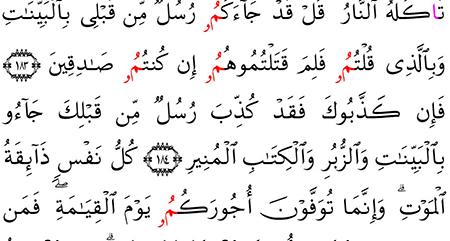 تَاكُلُهُ اُ۬لنَّارُ قُلْ قَدْ جَآءَكُمُۥ رُسُلٌ مِّن قَبْلِى بِالْبَيِّنَٰتِ
وَبِالَّذِى قُلْتُمُۥ فَلِمَ قَتَلْتُمُوهُمُۥ إِن كُنتُمُۥ صَٰدِقِينَ ۝١٨٣
فَإِن كَذَّبُوكَ فَقَدْ كُذِّبَ رُسُلٌ مِّن قَبْلِكَ جَآءُو
بِالْبَيِّنَٰتِ وَالزُّبُرِ وَالْكِتَٰبِ الْمُنِيرِ ۝١٨٤ كُلُّ نَفْسٍ ذَآئِقَةُ
الْمَوْتِۗ وَإِنَّمَا تُوَفَّوْنَ أُجُورَكُمُۥ يَوْمَ الْقِيَٰمَةِۖ فَمَن